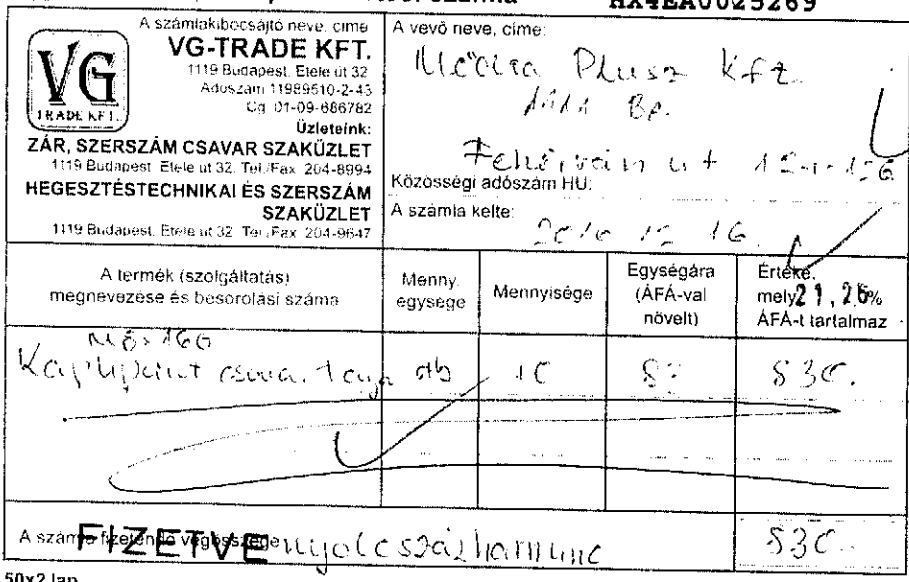 HX4EA0025269
A számlakibocsájtó neve, címe
VG-TRADE KFT.
1119 Budapest, Etele út 32
Adószám 11989510-2-43
Cg. 01-09-686782
Üzleteink:
ZÁR, SZERSZÁM CSAVAR SZAKÜZLET
1119 Budapest Etele út 32. Tel./Fax 204-8994
HEGESZTÉSTECHNIKAI ÉS SZERSZÁM
SZAKÜZLET
1119 Budapest, Etele út 32 Tel./Fax 204-9647
VG
TRADE KFT.
A vevő neve, címe:
Média Plusz Kft.
Bp.
Fehérvári út
Közösségi adószám HU:
A számla kelte:
2010 12 16.
A termék (szolgáltatás)
megnevezése és besorolási száma
Menny.
egysége
Mennyisége
Egységára
(ÁFÁ-val
növelt)
Értéke,
mely 21,26%
ÁFÁ-t tartalmaz
db 10 830.
A számla fizetendő végösszege nyolcszázharminc 830.
FIZETVE
50x2 lap